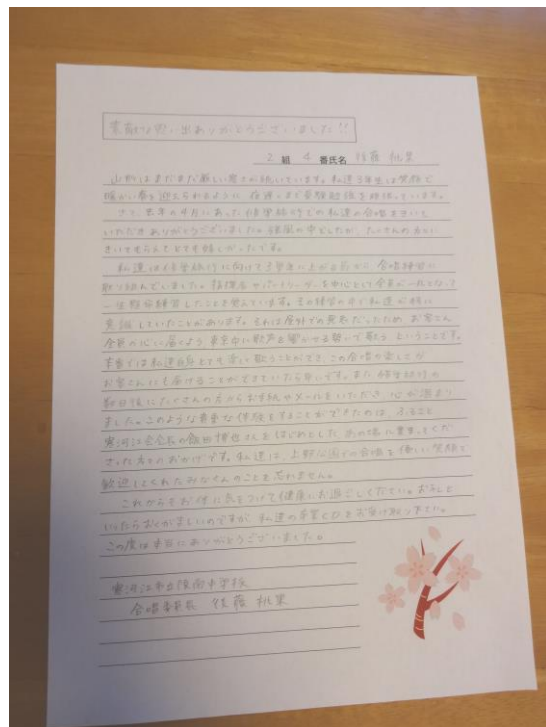 素敵な思い出ありがとうございました!!
2 組 4 番氏名 佐藤 桃果
山形はまだまだ厳しい寒さが続いています。私達3年生は笑顔で
暖かい春を迎えられるように 夜遅くまで受験勉強を頑張っています。
さて、去年の4月にあった修学旅行での私達の合唱をきいて
いただきありがとうございました。強風の中でしたが、たくさんの方に
きいてもらえてとても嬉しかったです。
私達は修学旅行に向けて3学年に上がる前から、合唱練習に
取り組んでいました。指揮者やパートリーダーを中心として全員が一丸となって
一生懸命練習したことを覚えています。その練習の中で私達が特に
意識していたことがあります。それは屋外での発表だったため お客さん
全員の心に届くよう 東京中に歌声を響かせる勢いで歌う ということです。
本番では私達自身とても楽しく歌うことができ、この合唱の楽しさが
お客さんにも届けることができていたら幸いです。また 修学旅行の
数日後にたくさんの方からお手紙やメールをいただき、心が温まり
ました。このような貴重な体験をすることができたのは、ふるさと
寒河江会会長の飯田博也さんをはじめとした あの場に集まってくだ
さった方々のおかげです。私達は、上野公園での合唱を優しい笑顔で
歓迎してくれたみなさんのことを忘れません。
これからもお体に気をつけて健康にお過ごしください。お守りと
いったらおこがましいのですが、私達の卒業 をお受け取り下さい。
この度は本当にありがとうございました。
寒河江市立陵南中学校
合唱委員長 佐藤 桃果